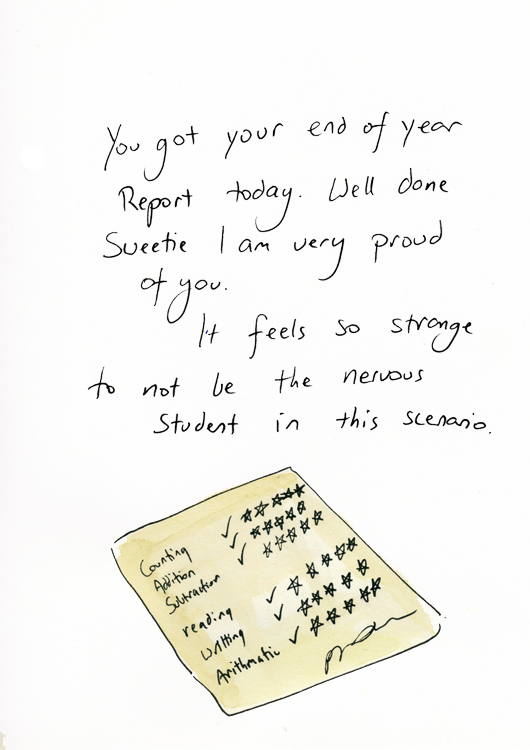 You got your end of year
Report today. Well done
Sweetie I am very proud
of you.
It feels so strange
to not be the nervous
Student in this scenario.
Counting ✓ ☆☆☆☆☆
Addition ✓ ☆☆☆☆☆
Subtraction ✓ ☆☆☆☆☆
reading ✓ ☆☆☆☆☆
writting ✓ ☆☆☆☆☆
Arithmatic ✓ ☆☆☆☆☆